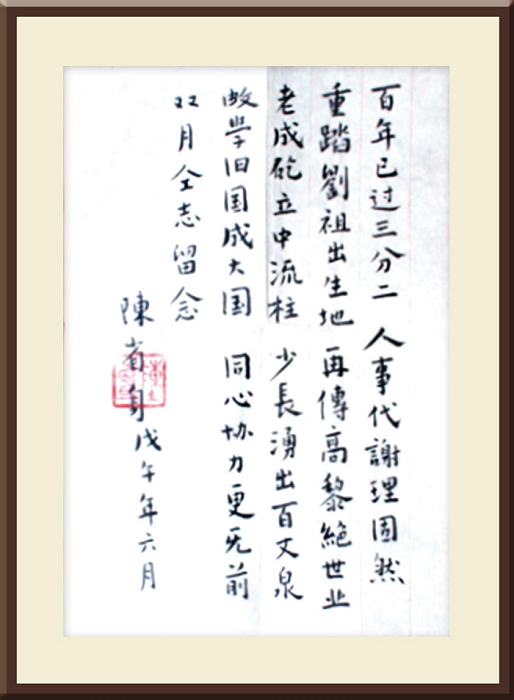 百年已过三分二 人事代謝理固然
重踏劉祖出生地 再傳高黎絶世业
老成砲立中流柱 少長湧出百丈泉
敢学旧国成大国 同心协力更无前
双月仝志留念
陳省身
戊午年六月